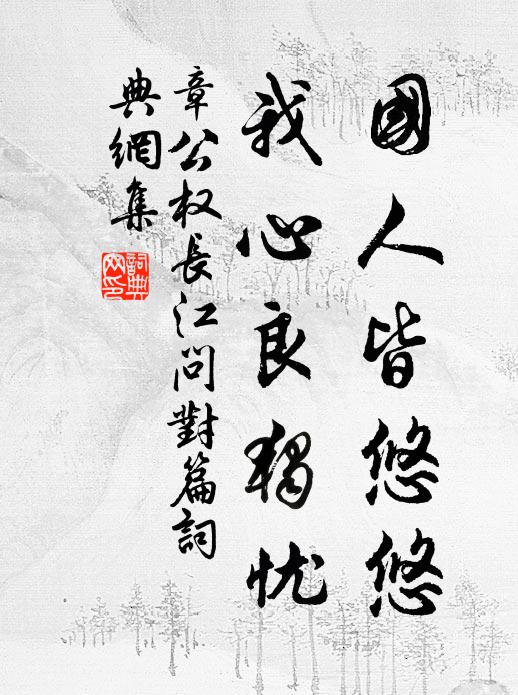 國人皆悠悠
我心良獨忧
章公权長江問對篇詞
典網集
詞典网印